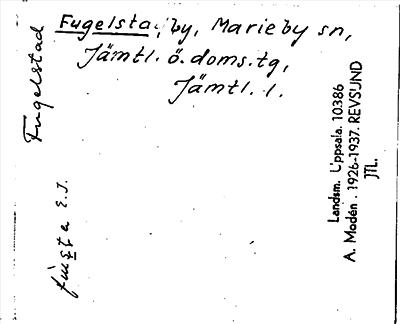 Fugelsta, by, Marieby sn,
Jämtl. ö. doms.tg,
Jämtl. l.
Fugelstad
fu̇gsta E.J.
Landsm. Uppsala. 10386
A. Modén. 1926-1937. REVSUND
JTL.